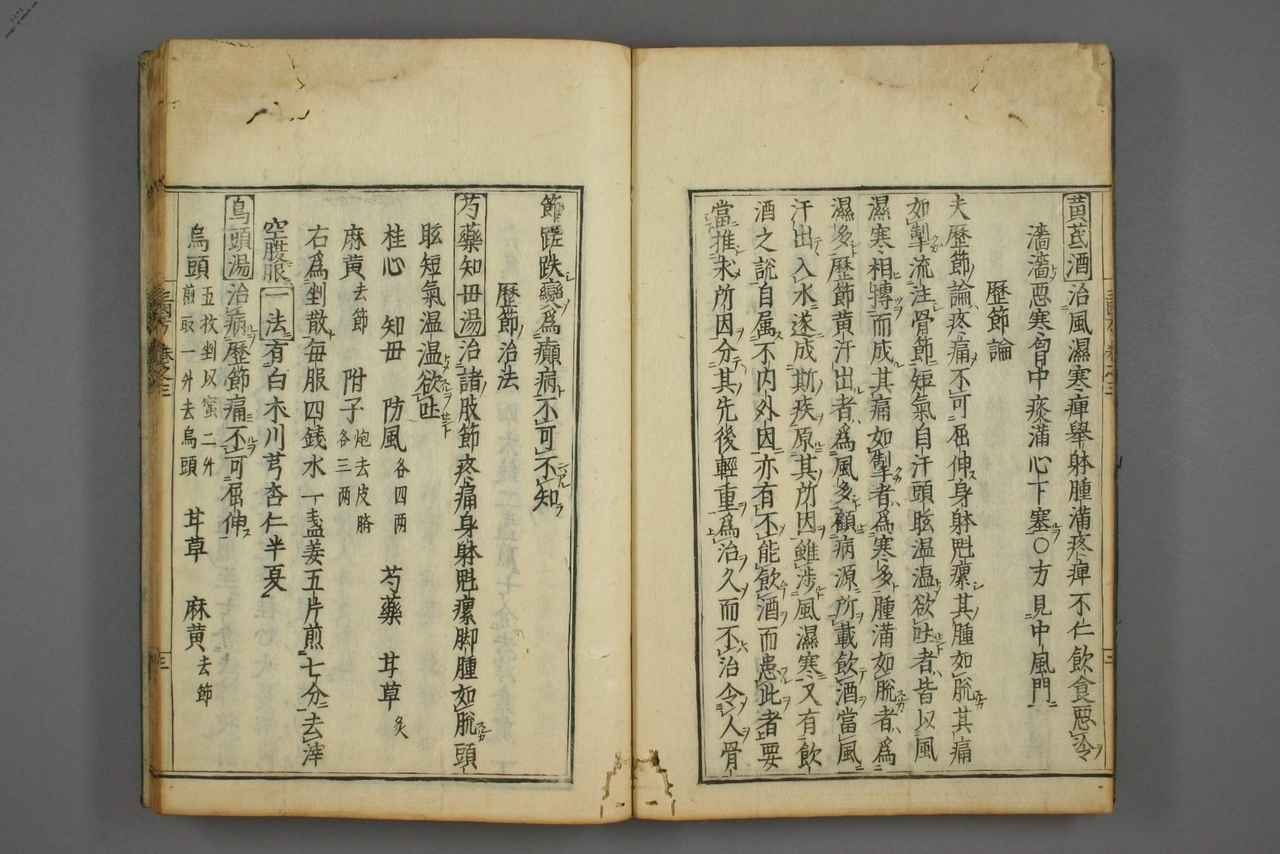 黄芪酒治風濕寒痺舉躰腫滿疼痺不仁飲食惡冷
濇濇惡寒胷中痰滿心下塞〇方見中風門
歷節論
夫歷節論疼痛不可屈伸身躰魁瘰其腫如脫其痛
如掣流注骨節短氣自汗頭眩温温欲吐者皆以風
濕寒相摶而成其痛如掣者爲寒多腫滿如脫者爲
濕多歷節黄汗出者爲風多顧病源所載飲酒當風
汗出入水遂成斯疾原其所因雖涉風濕寒又有飲
酒之說自属不内外因亦有不能飲酒而患此者要
當推求所因分其先後輕重爲治久而不治令人骨
節蹉跌變爲癲病不可不知
歷節治法
芍藥知毋湯治諸肢節疼痛身躰魁瘰脚腫如脫頭
眩短氣温温欲吐
桂心 知毋 防風各四两 芍藥 甘草炙
麻黄去節 附子炮去皮臍各三两
右爲剉散毎服四銭水一盞姜五片煎七分去滓
空腹服一法有白木川芎杏仁半夏
烏頭湯治病歷節痛不可屈伸
烏頭五枚剉以蜜二升煎取一升去烏頭 甘草 麻黄去節